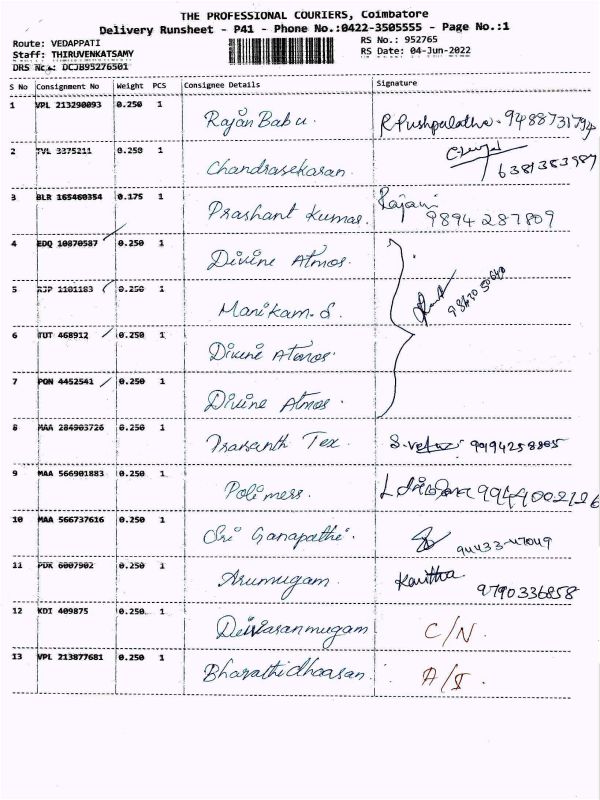 THE PROFESSIONAL COURIERS, Coimbatore
Delivery Runsheet - P41 - Phone No.:0422-3505555 - Page No.:1
Route: VEDAPPATI RS No.: 952765
Staff: THIRUVENKATSAMY RS Date: 04-Jun-2022
DRS No.: DCJB95276501
S No Consignment No Weight PCS Consignee Details Signature
1 VPL 213290093 0.250 1 Rajan Babu. R Pushpalatha. 9488731794
2 TVL 3375211 0.250 1 Chandrasekaran. 6381383987
3 BLR 165460354 0.175 1 Prashant Kumar. Rajani
9894287809
4 EDQ 10870587 0.250 1 Divine Atmos.
5 RJP 1101183 0.250 1 Manikam. S.
6 TUT 468912 0.250 1 Divine Atmos.
7 PON 4452541 0.250 1 Divine Atmos.
8 MAA 284903726 0.250 1 Prasanth Tex. 99194258805
9 MAA 566901883 0.250 1 Polimers. 9944002126
10 MAA 566737616 0.250 1 Sri Ganapathi. 94433-47049
11 PDK 6007902 0.250 1 Arumugam. Kavitha
9790336858
12 KDI 409875 0.250 1 Deivasanmugam C/N.
13 VPL 213877681 0.250 1 Bharathidhaasan. A/I.